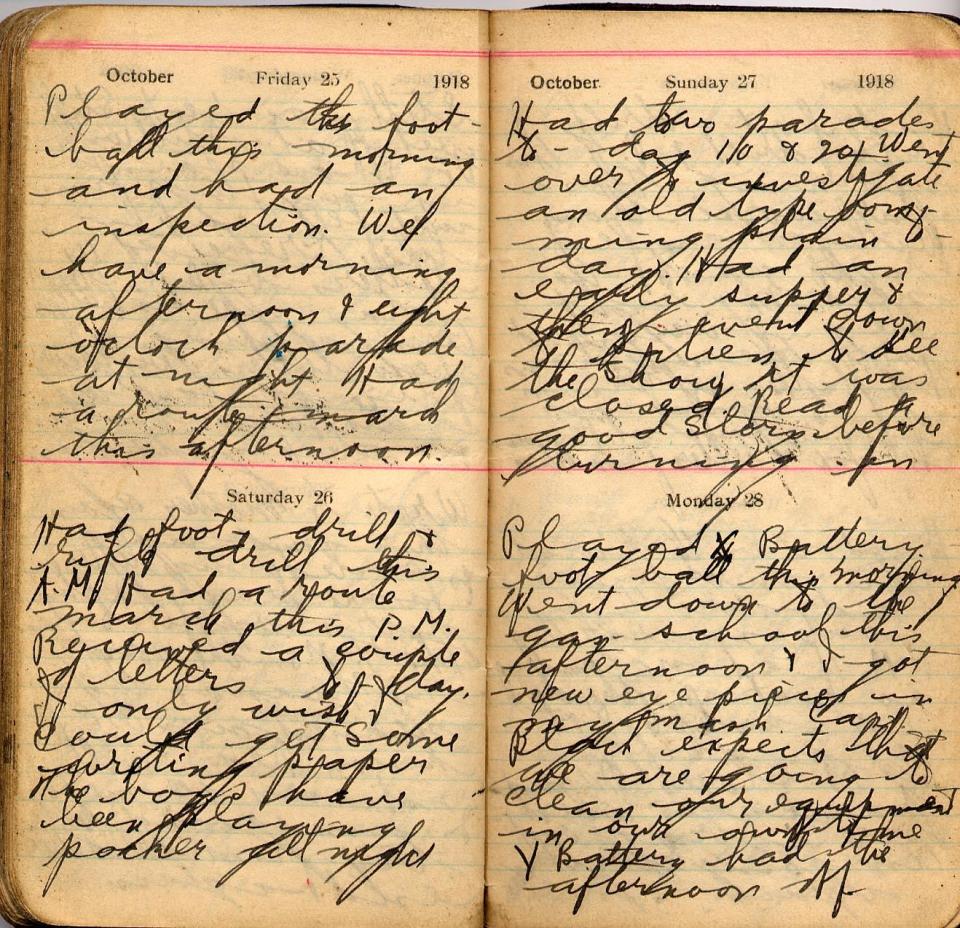 October Friday 25 1918
Played this foot-
ball this morning
and had an
inspection. We
have a morning
afternoon & eight
oclock parade
at night Had
a route march
this afternoon.
Saturday 26
Had foot drill &
rifle drill this
A.M. Had a route
march this P.M.
Received a couple
of letters to day.
I only wish I
could get some
writing paper
The boys have
been playing
pocker all night
October Sunday 27 1918
Had two parades
to-day 10 & 2. Went
over to investigate
an old type
plain
day. Had an
early supper &
then went down
to see
the show it was
closed. Read a
good story before
turning in
Monday 28
Played Battery
foot ball this morning
Went down to the
gas school this
afternoon & I got
new eye pieces in
my mask Capt
Black expects that
we are going to
clean our equipment
in our own time
Y Battery had the
afternoon off